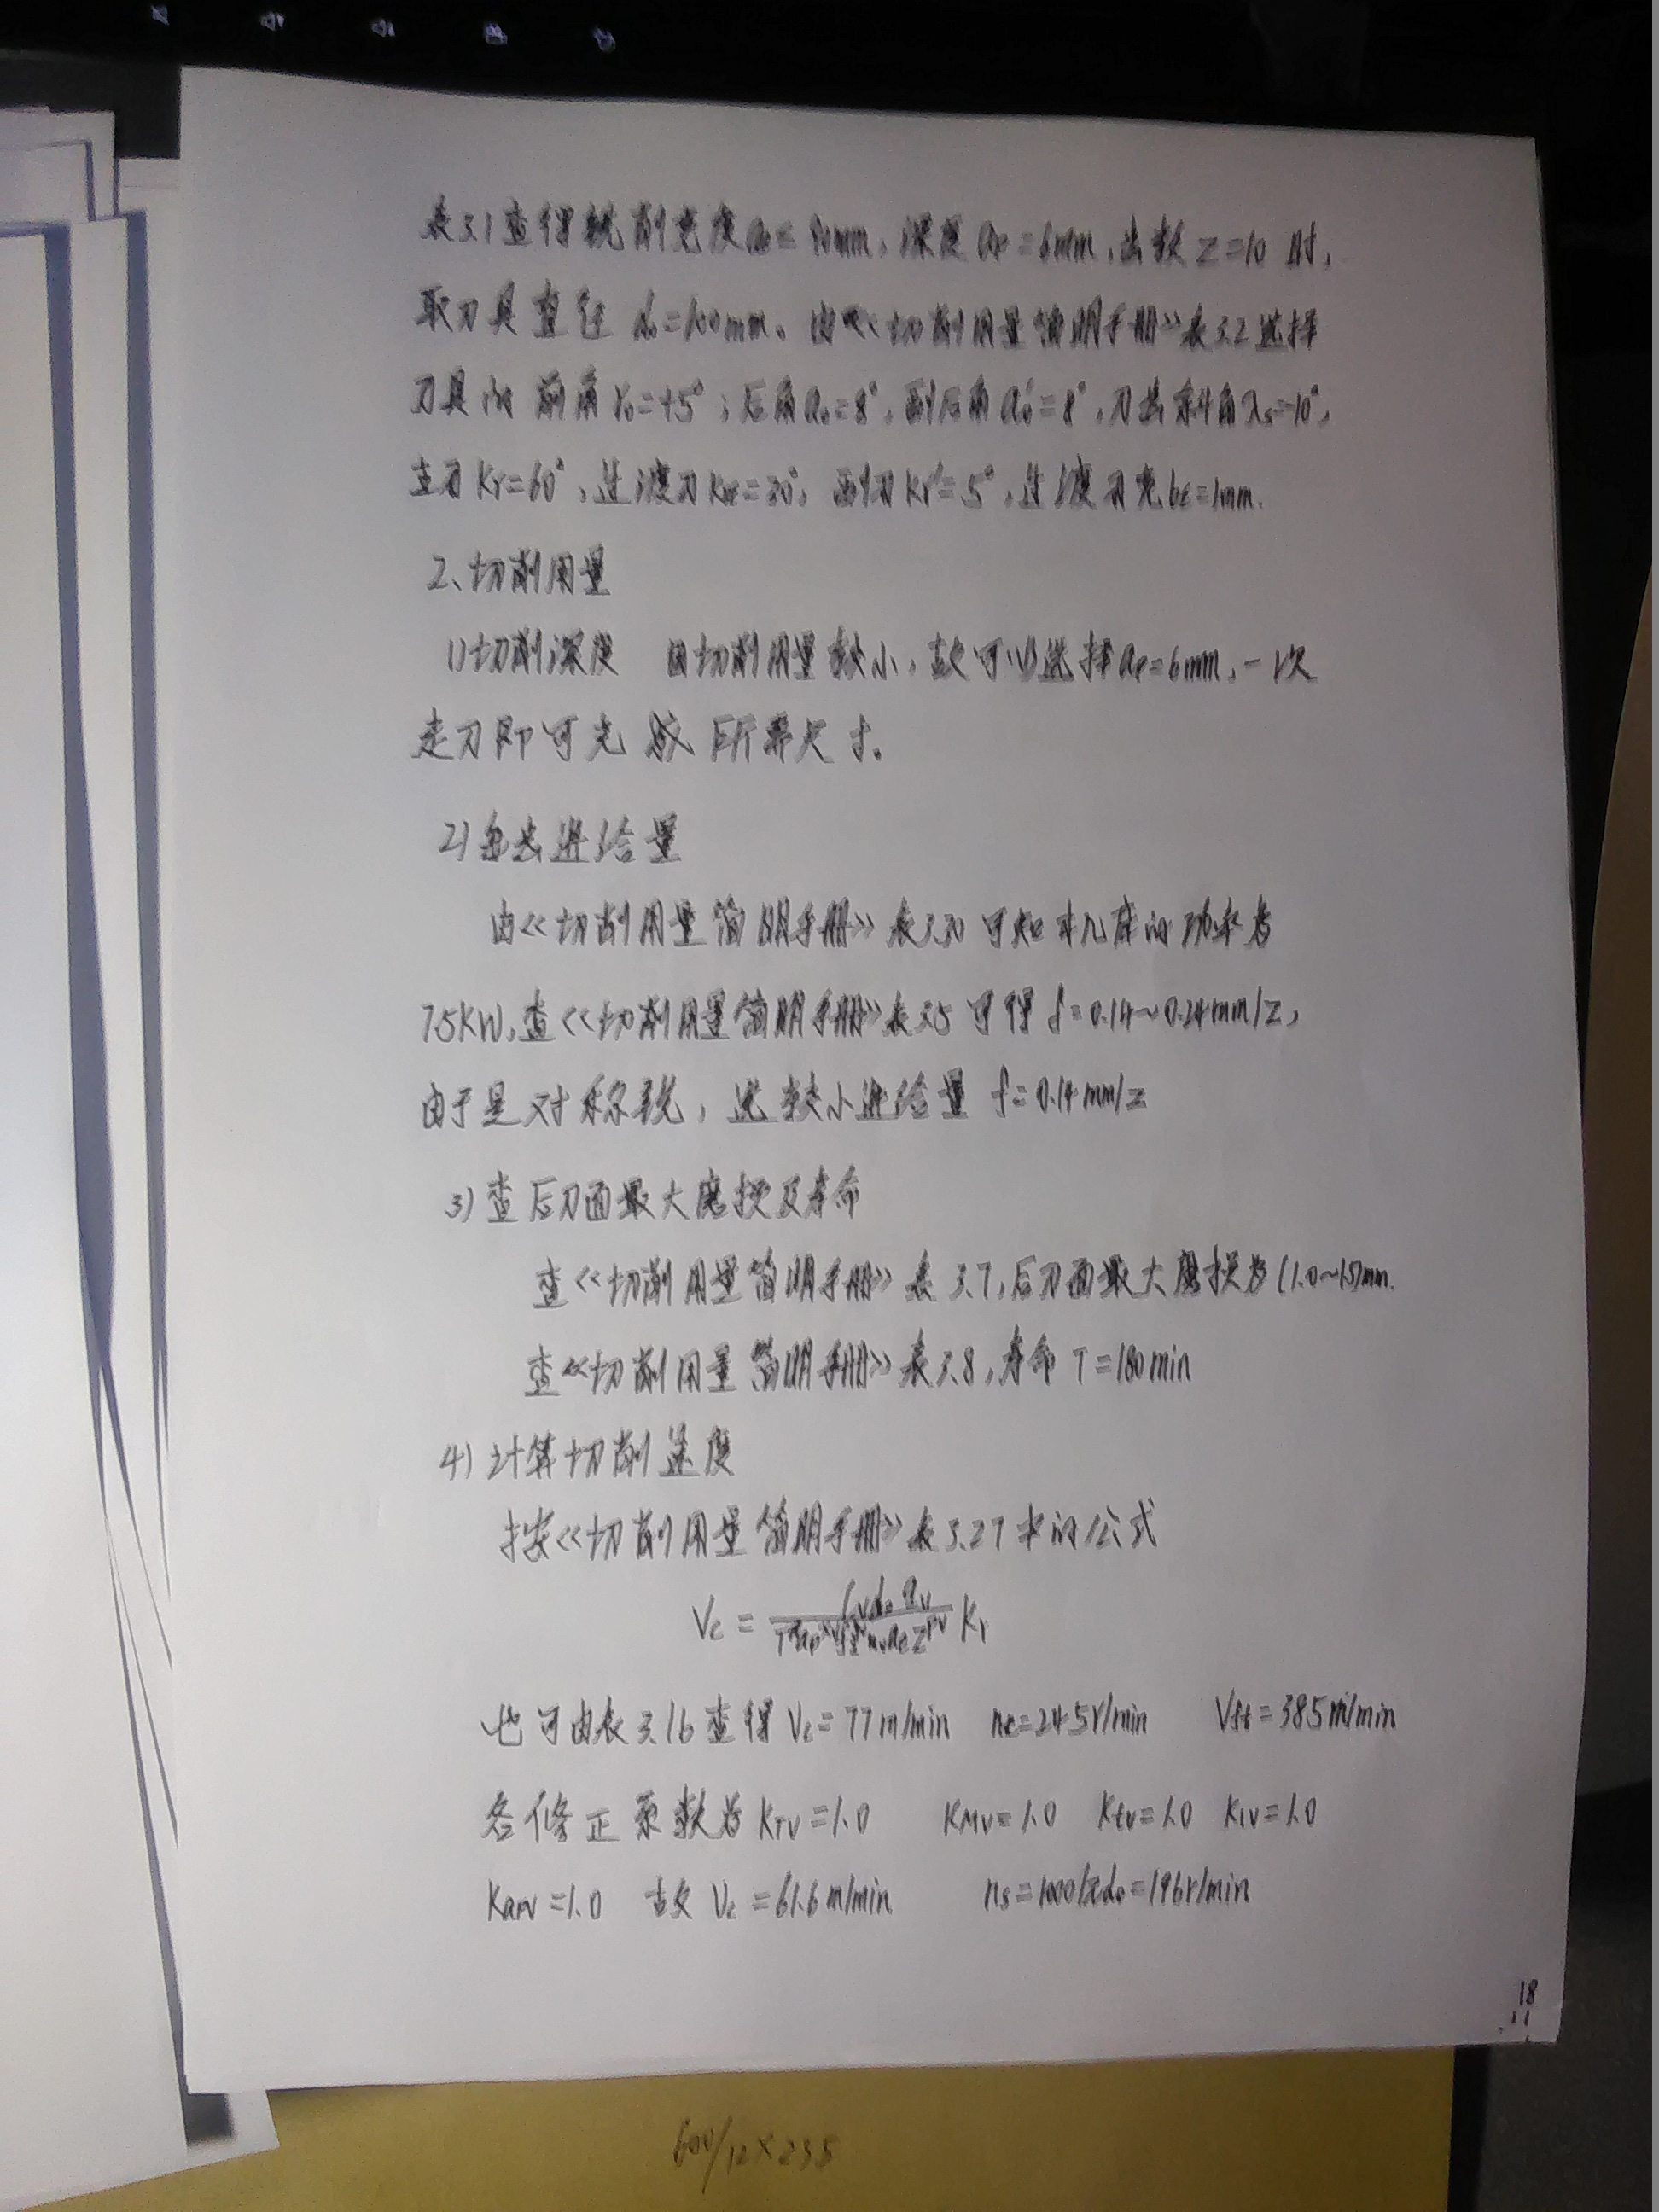 表3.1查得铣削宽度ae≤90mm,深度ap=6mm,齿数z=10时,
取刀具直径d0=100mm。由《切削用量简明手册》表3.2选择
刀具的前角γ0=+5°;后角α0=8°,副后角α0'=8°,刀齿斜角λs=-10°,
主刃Kr=60°,过渡刃Krε=30°,副刃Kr'=5°,过渡刃宽bε=1mm.
2、切削用量
1)切削深度 因切削用量较小,故可以选择ap=6mm,一次
走刀即可完成所需尺寸。
2)每齿进给量
由《切削用量简明手册》表3.30可知机床的功率为
7.5KW,查《切削用量简明手册》表3.5可得f=0.14~0.24mm/z,
由于是对称铣,选较小进给量f=0.14mm/z
3)查后刀面最大磨损及寿命
查《切削用量简明手册》表3.7,后刀面最大磨损为(1.0~1.5)mm.
查《切削用量简明手册》表3.8,寿命T=180min
4)计算切削速度
按《切削用量简明手册》表3.27中的公式
Vc=
也可由表3.16查得Vc=77m/min nc=245r/min Vft=385m/min
各修正系数为KTV=1.0 KMV=1.0 Ktv=1.0 K1V=1.0
Karv=1.0 故Vc=61.6m/min ns=1000/πd0=196r/min
18
600/12×235